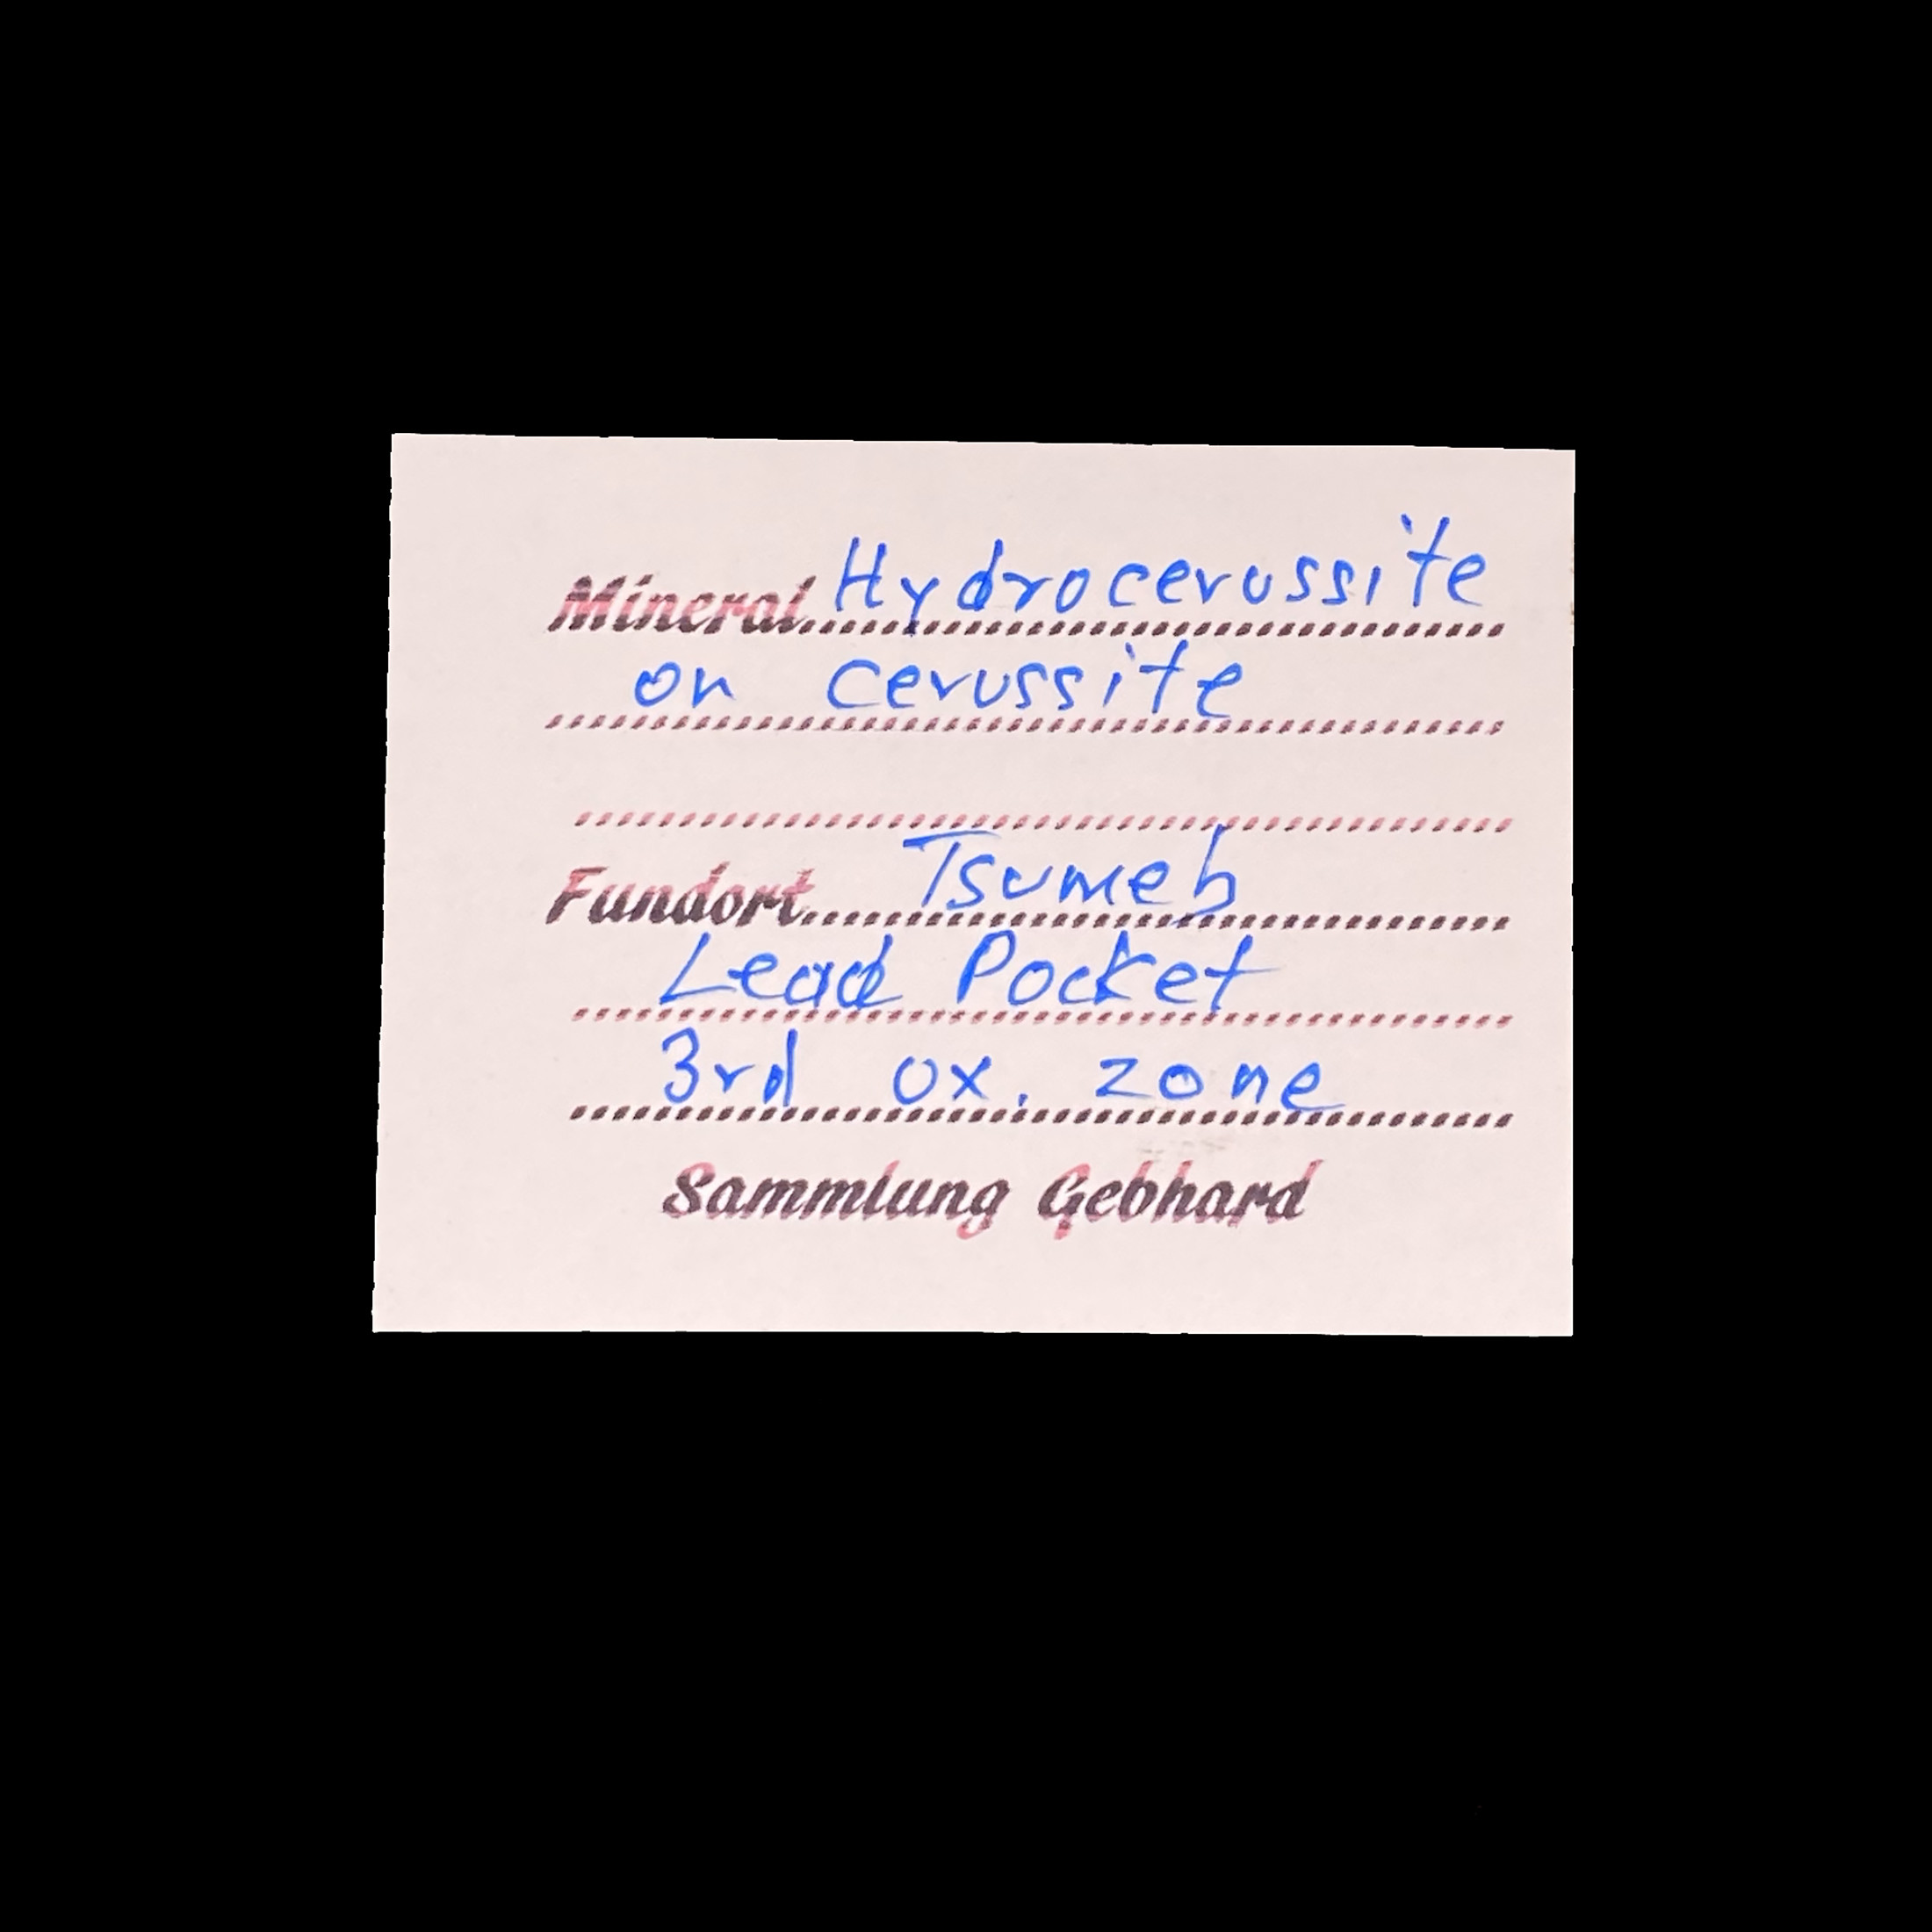 Mineral Hydrocerussite
on cerussite
Fundort Tsumeb
Lead Pocket
3rd ox. zone
Sammlung Gebhard